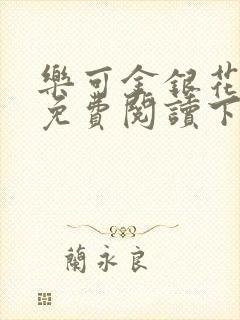 樂可金銀花
免費閱讀下
蘭永良